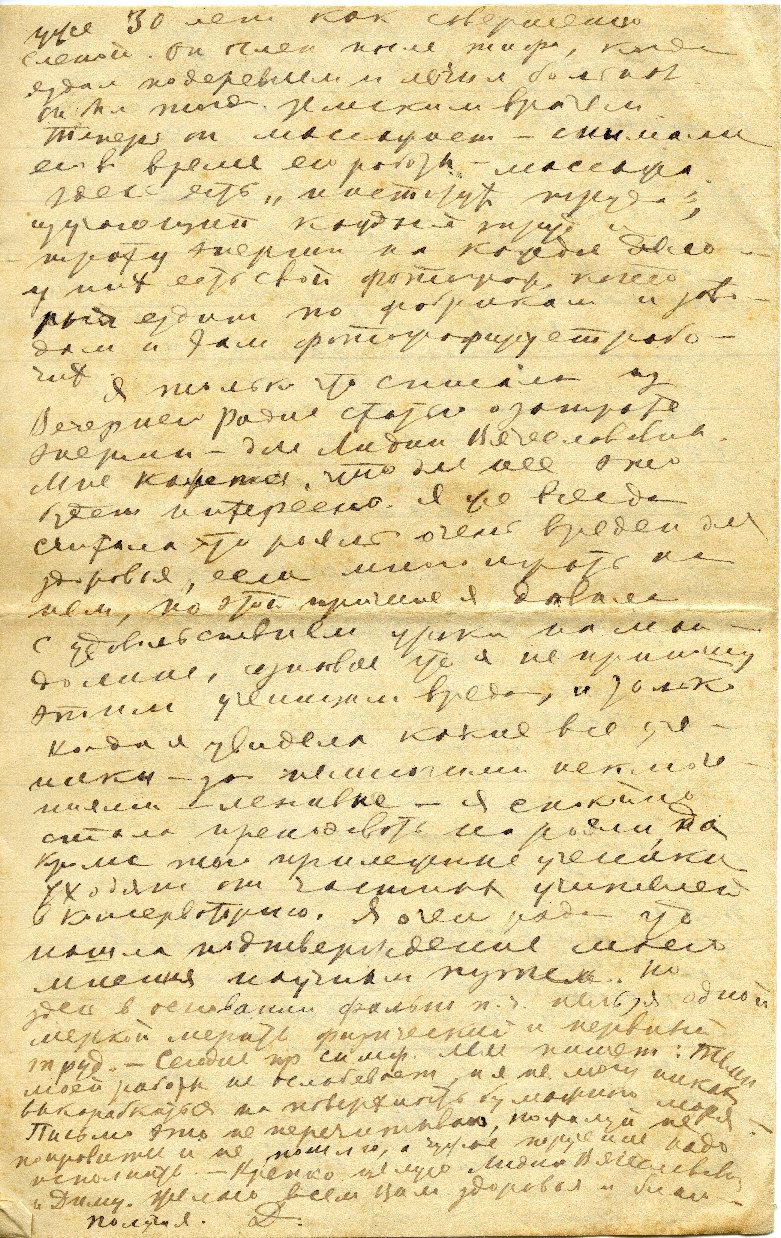 уже 30 лет как совершенно
слепой. он ослеп после тифа, когда
ездил по деревням и лечил больных
он был тогда земским врачем
Теперь он массирует – снимали
его в время его работы – массажа.
здесь есть „институт труда",
изучающий каждый труд и
трату энергии на каждое дело –
у них есть свой фотограф, кото
рый ездит по фабрикам и заво-
дам и там фотографирует рабо-
чих.
Я только что списала из
Вечерней Радио статью о затрате
энергии – для Лидии Вячеславовны.
Мне кажется, что для нее это
будет интересно. Я уже всегда
считала что рояль очень вреден для
здоровья, если много играть на
нем, по этой причине я давала
с удовольствием уроки на ман-
долине, сознавая что я не приношу
этим ученицам вреда, и только
когда я увидела какие все уче-
ники – за немногими исключе-
ниями – ленивые – я спокойно
стала преподавать на рояли, да
кроме того прилежные ученики
уходят от частных учителей
в консерваторию. Я очень рада что
нашла подтверждение моего
мнения научным путем. Но
здесь в основании фальшь п.ч. нельзя одной
меркой мерить физический и нервный
труд. – Сегодня пр. Мне пишет: Темп
моей работы не ослабевает, и я не могу никак
выкарабкаться на поверхность бумажного моря
Письмо это не перечитываю, пожалуй не
понравится и не пошлю, а чужое поручение надо
исполнить. – Крепко целую Лидию Вячеславовну
и Диму. Желаю всем Вам здоровья и благо-
получия. Д.